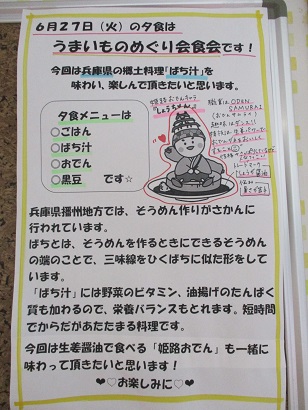 6月27日（火）の夕食は
うまいものめぐり会食会です！
今回は兵庫県の郷土料理「ばち汁」を
味わい、楽しんで頂きたいと思います。
夕食メニューは
○ごはん
○ばち汁
○おでん
○黒豆　です☆
姫路おでんキャラ
「しょうちゃん」
職業はODEN
SAMURAI
(おでんサムライ)
兵庫県播州地方では、そうめん作りがさかんに
行われています。
ばちとは、そうめんを作るときにできるそうめん
の端のことで、三味線をひくばちに似た形をして
います。
「ばち汁」には野菜のビタミン、油揚げのたんぱく
質も加わるので、栄養バランスもとれます。短時間
でからだがあたたまる料理です。
今回は生姜醤油で食べる「姫路おでん」も一緒に
味わって頂きたいと思います！
❤♡お楽しみに♡❤